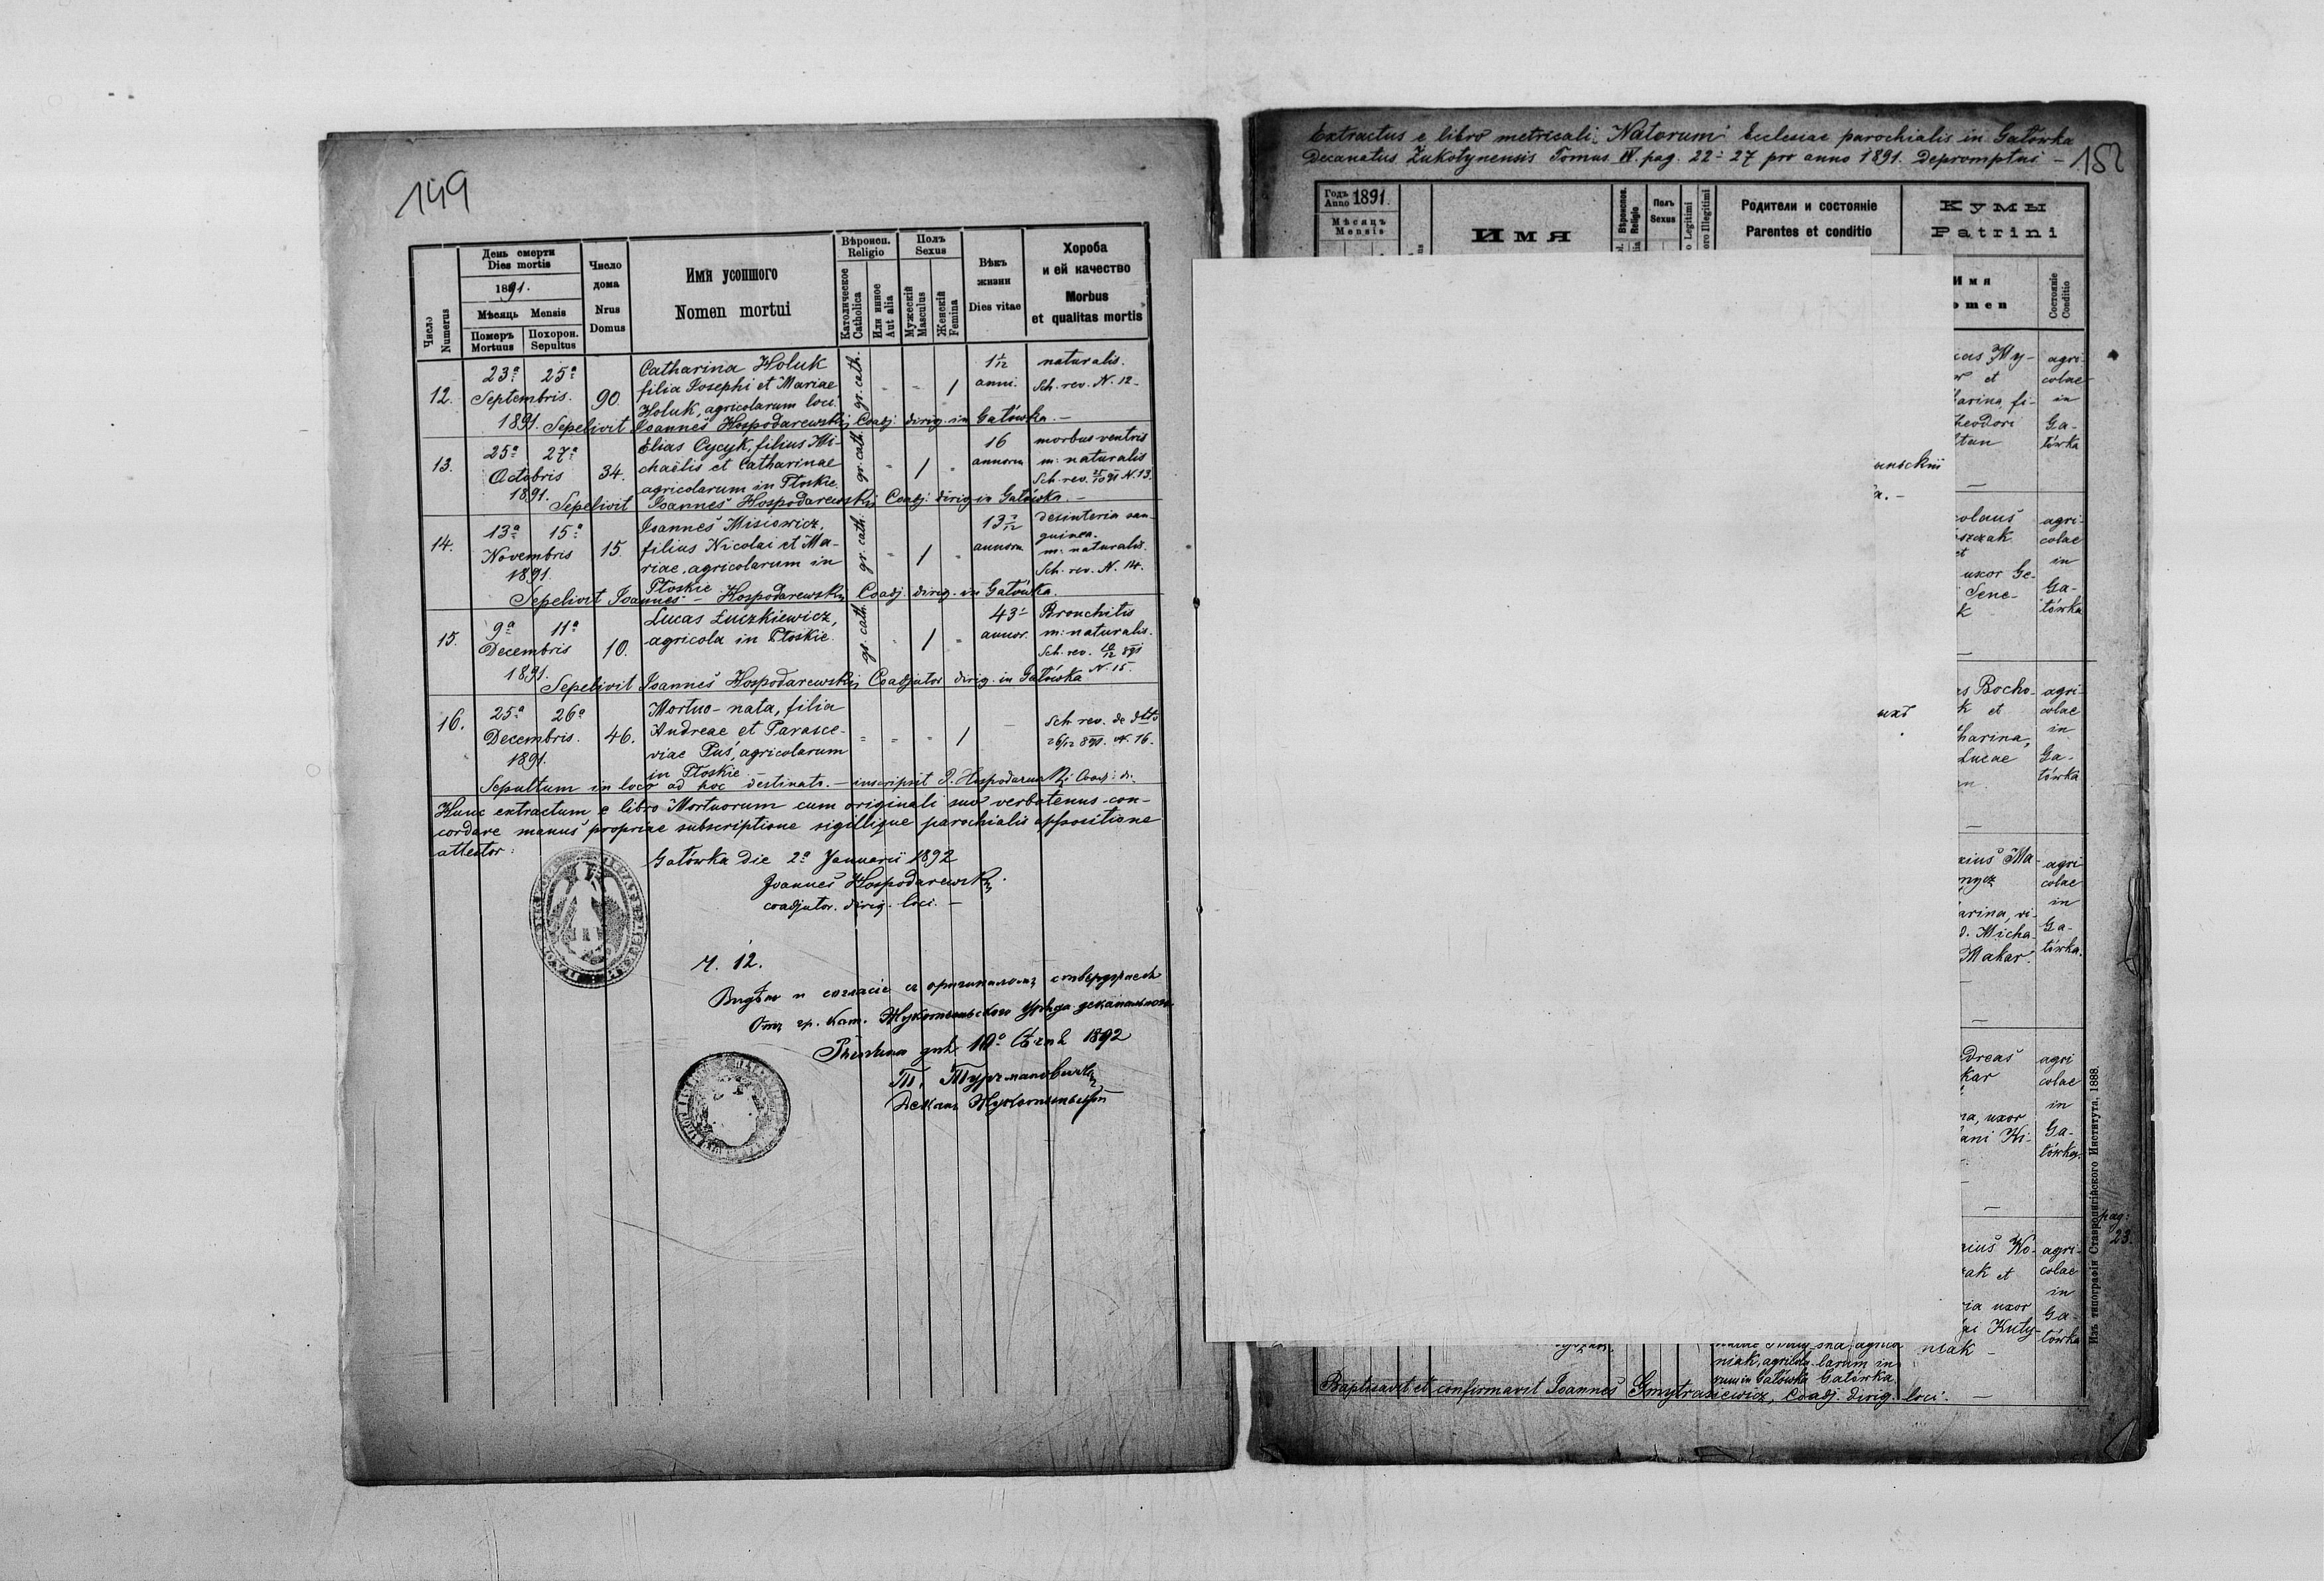 149
Число
Numerus
День смерти
Dies mortis
1891.
Мѣсяць Mensis
Померъ
Mortuus
Похорон.
Sepultus
Число
дома
Nrus
Domus
Имя усопшого
Nomen mortui
Вѣроисп.
Religio
Католическое
Catholica
Или иниое
Aut alia
Полъ
Sexus
Мужескій
Masculus
Женскій
Femina
Вѣкъ
жизни
Dies vitae
Хороба
и ей качество
Morbus
et qualitas mortis
12. 23ª 25ª Septembris. 1891. 90. gr. cath. - - 1
Catharina Holuk
filia Josephi et Mariae
Holuk, agricolarum loci.
1 1/12
anni.
naturalis.
Sch. rev. N. 12-
Sepelivit Joannes Hospodarewskij Coadj. dirig. in Gatówka. -
13. 25ª 27ª Octobris 1891. 34. gr. cath. - 1 -
Elias Cycyk, filius Mi-
chaëlis et Catharinae
agricolarum in Płoskie.
16
annorum
morbus ventris
m: naturalis
Sch. rev. 25/10 91 N. 13.
Sepelivit Joannes Hospodarewskij Coadj. dirig. in Gatówka. -
14. 13ª 15ª Novembris 1891. 15. gr. cath. - 1 -
Joannes Misiewicz,
filius Nicolai et Ma-
riae, agricolarum in
Płoskie
annorum
desinteria san-
guinea.
m: naturalis.
Sch. rev. N. 14.
Sepelivit Joannes - Hospodarewskij Coadj. dirig. in Gatówka.
15. 9ª 11ª Decembris 1891. 10. gr. cath. - 1 -
Lucas Łuczkiewicz,
agricola in Płoskie.
43
annor.
Bronchitis
m: naturalis.
Sch. rev. 10/12 891
N. 15.
Sepelivit Joannes Hospodarewskij Coadjutor dirig. in Gatówka
16. 25ª 26ª Decembris. 1891. 46. - - - 1
Mortuo-nata, filia
Andreae et Parasce-
viae Puś, agricolarum
in Płoskie
Sch. rev. de dtto
26/12 891. N. 16.
Sepultum in loco ad hoc destinato. - inscripsit J. Hospodarewskij Coadj. di.
Hunc extractum e libro Mortuorum cum originali suo verbotenus con-
cordare manus propriae subscriptione sigillique parochialis appositione
attestor:
Gatówka die 2ª Januarii 1892
Joannes Hospodarewskij.
coadjutor. dirig. loci. -
Ч. 12.
Видѣно и согласіе съ оригиналомъ
Отъ гр. кат. Жукотинского Уряда деканального
дня 10º Січня 1892
Т. Турчмановичъ
Деканъ Жукотинскій
Extractus e libro metricali Natorum Ecclesiae parochialis in Gatówka
Decanatus Żukotynensis Tomus IV. pag. 22-27 pro anno 1891. Depromptus -
152
Годъ
Anno 1891.
Мѣсяцъ
Mensis
Имя
Вѣроиспов.
Religio
Полъ
Sexus
Legitimi
Illegitimi
Родители и состояніе
Parentes et conditio
Кумы
Patrini
Имя
omen
Состояніе
Conditio
cas My-
et
harina, fi-
heodori
ltan
agri-
colae
in
Ga-
tówka
colaus
szczak
et
uxor Ge-
Sene-
k
agri-
colae
in
Ga-
tówka
as Bocho-
k et
harina,
Lucae
an.
agri-
colae
in
Ga-
tówka
xius Ma-
nycz
arina, vi-
d. Micha-
Makar.
agri-
colae
in
Ga-
tówka.
dreas
kar
na, uxor
ani Ki-
agri
colae
in
Ga-
tówka.
rius Ko-
zak et
ria uxor
ai Kuty-
niak -
agri-
colae
in
Ga-
tówka
pag:
23.
niak, agrico- larum in
rum in Gatówka Gatówka.
Baptisavit et confirmavit Joannes Gmytrasiewicz, Coadj. dirig. loci. -
Изъ типографіи Ставропигійского Института, 1888.